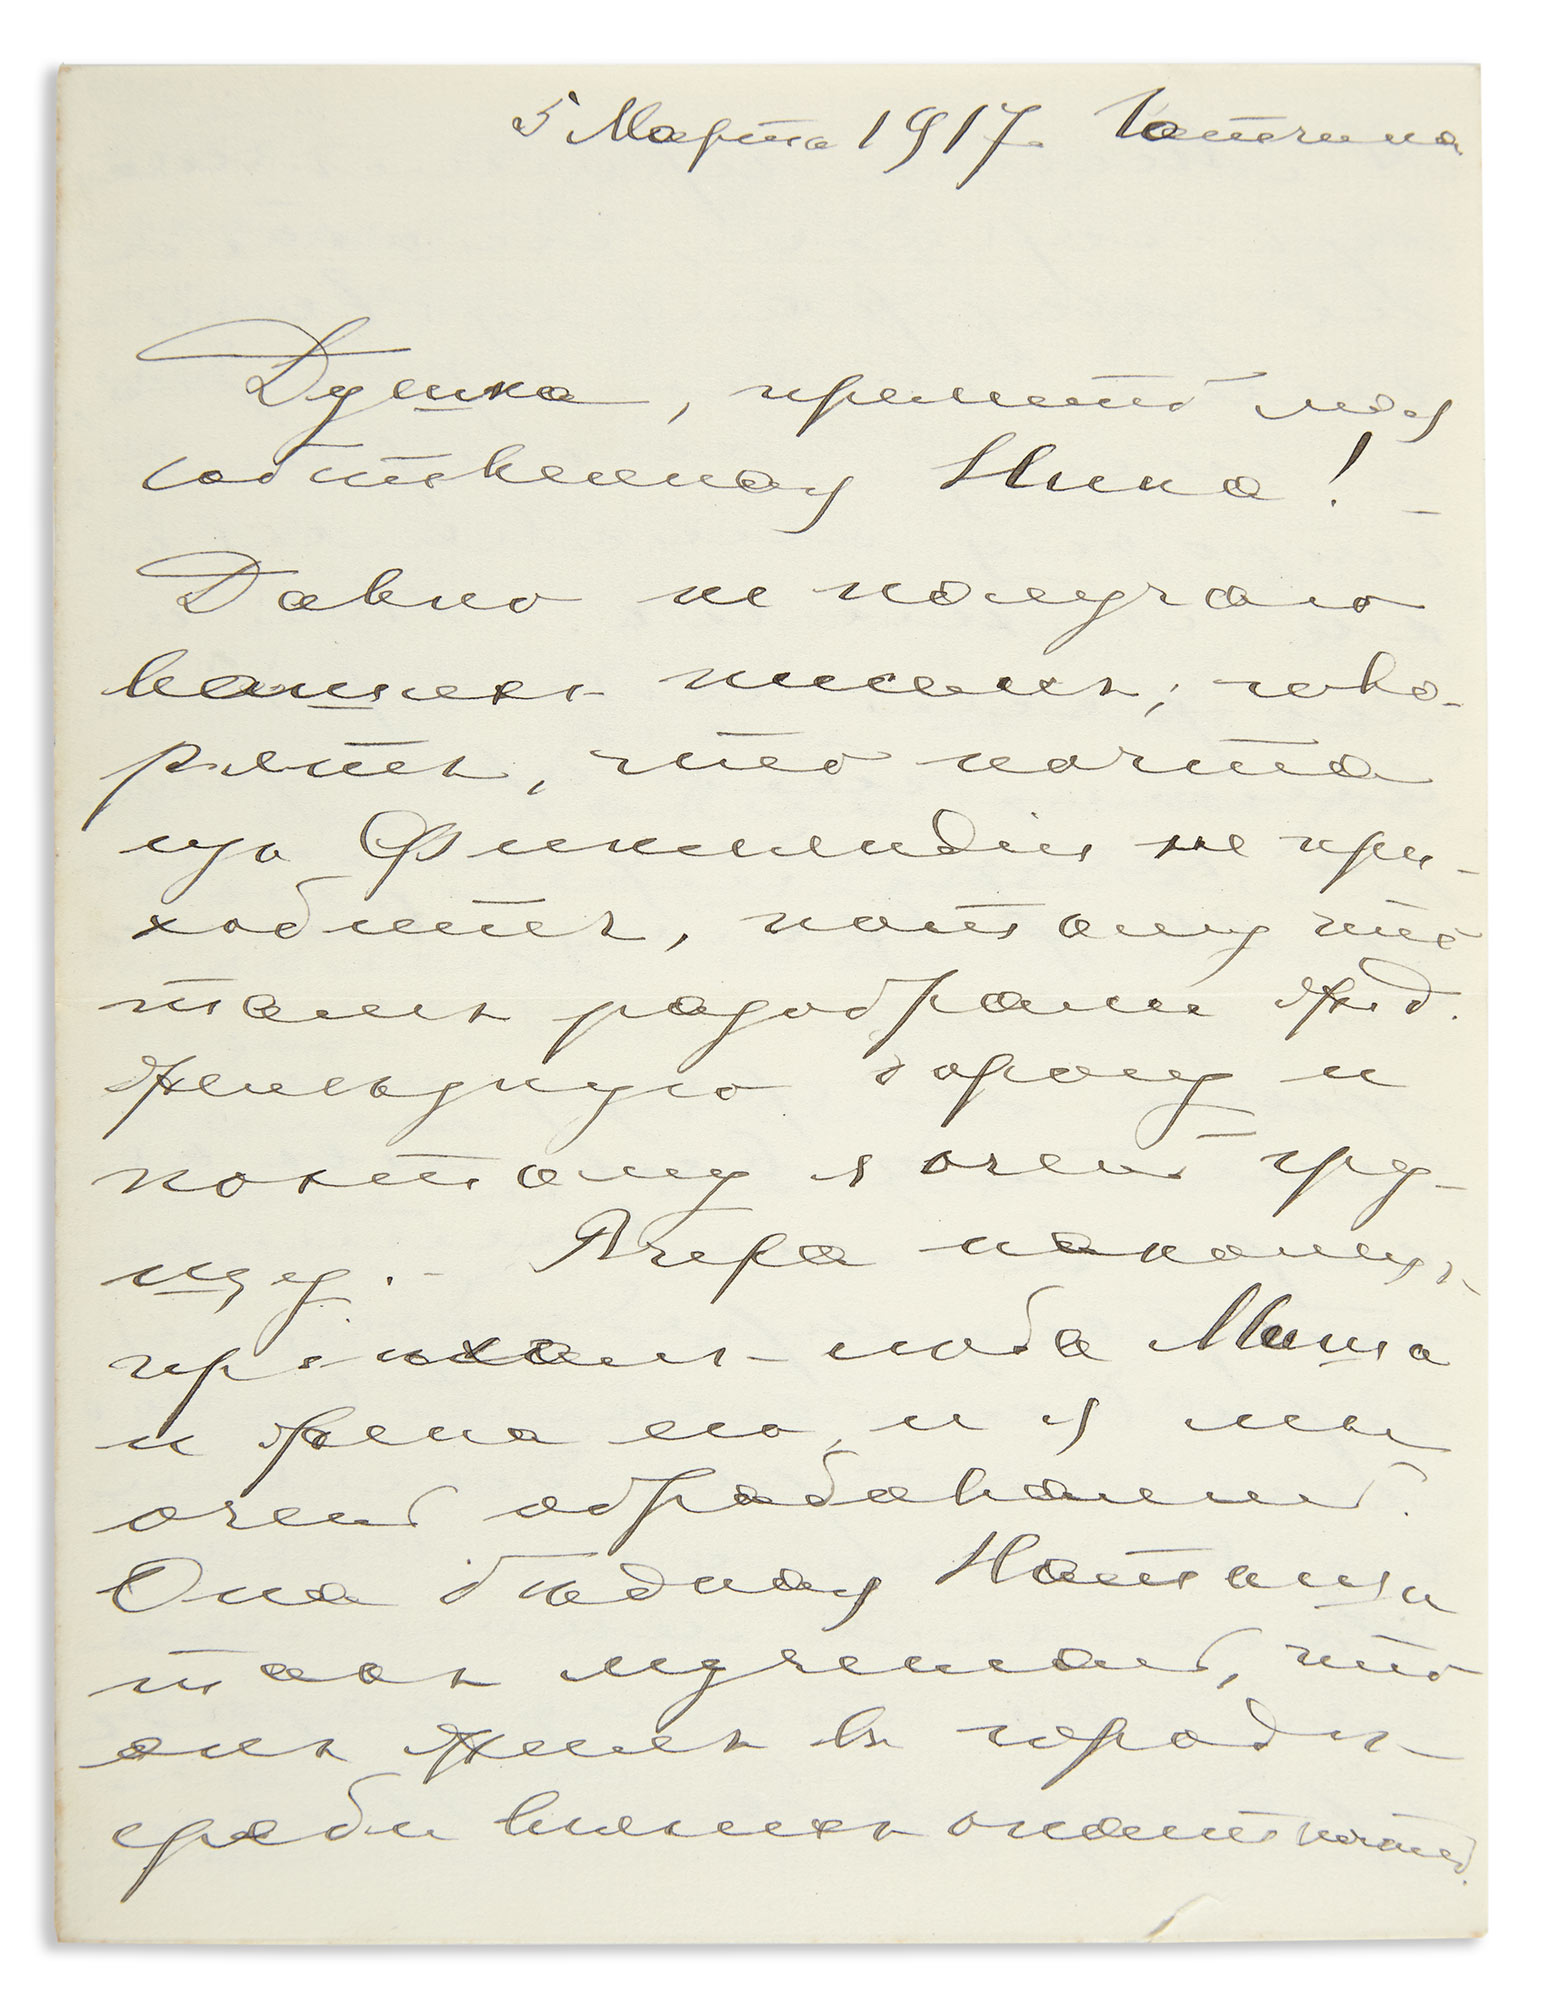 5 Марта 1917. Гатчина
Душка, прелесть моя
собственная Ника! –
Давно не получаю
вашихъ писемъ, гово-
рятъ, что почта
изъ Финляндіи не при-
ходитъ, потому что
тамъ разобрали
желѣзную дорогу и
поэтому я очень гру-
щу. – Вчера наконецъ
пріѣхалъ сюда Миша
и жена его, и я
очень обрадовались.
Она бѣдная Наташа
такъ мучилась, что
онъ жилъ въ городѣ
среди всѣхъ опасностей.